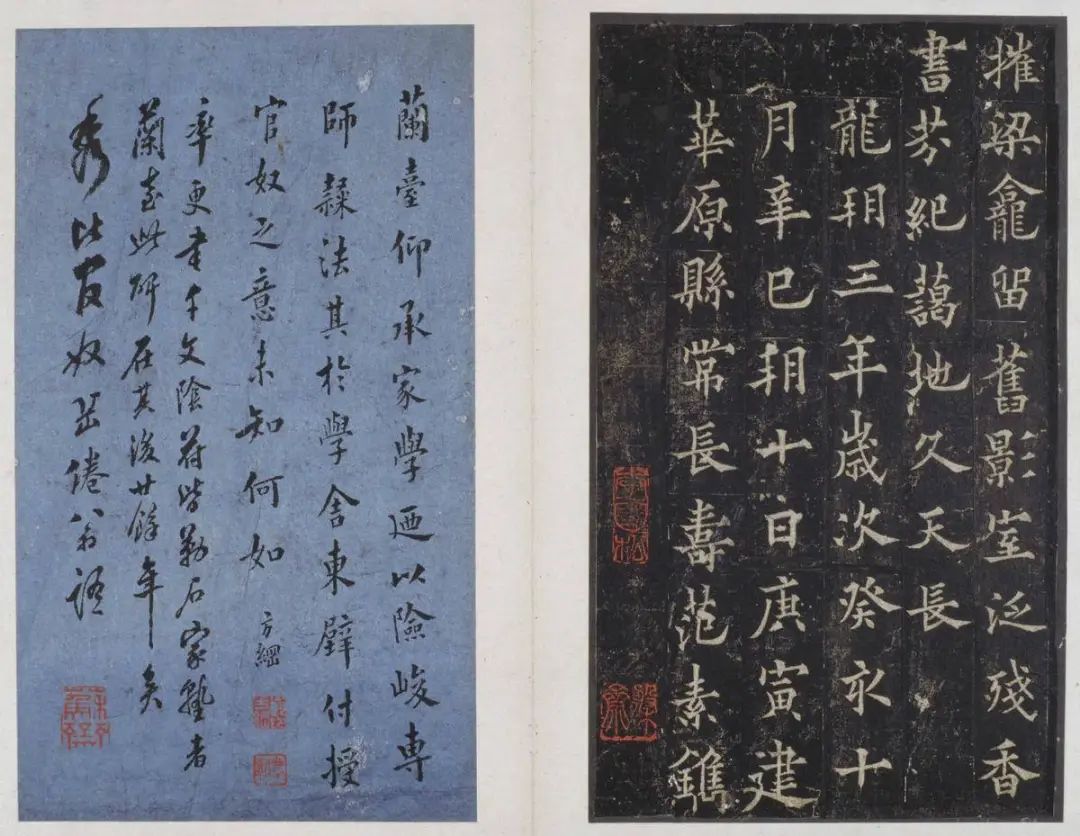 摧梁龕留舊影室泛殘香
書芬紀藹地久天長
龍朔三年歲次癸亥十
月辛巳朔十日庚寅建
華原縣常長壽范素鐫
蘭臺仰承家學迺以險峻專
師隸法其於學舍東壁付授
官奴之意未知何如 方綱
率更書千文陰符皆勒石家塾者
蘭臺此碑在其後廿餘年矣
比官奴